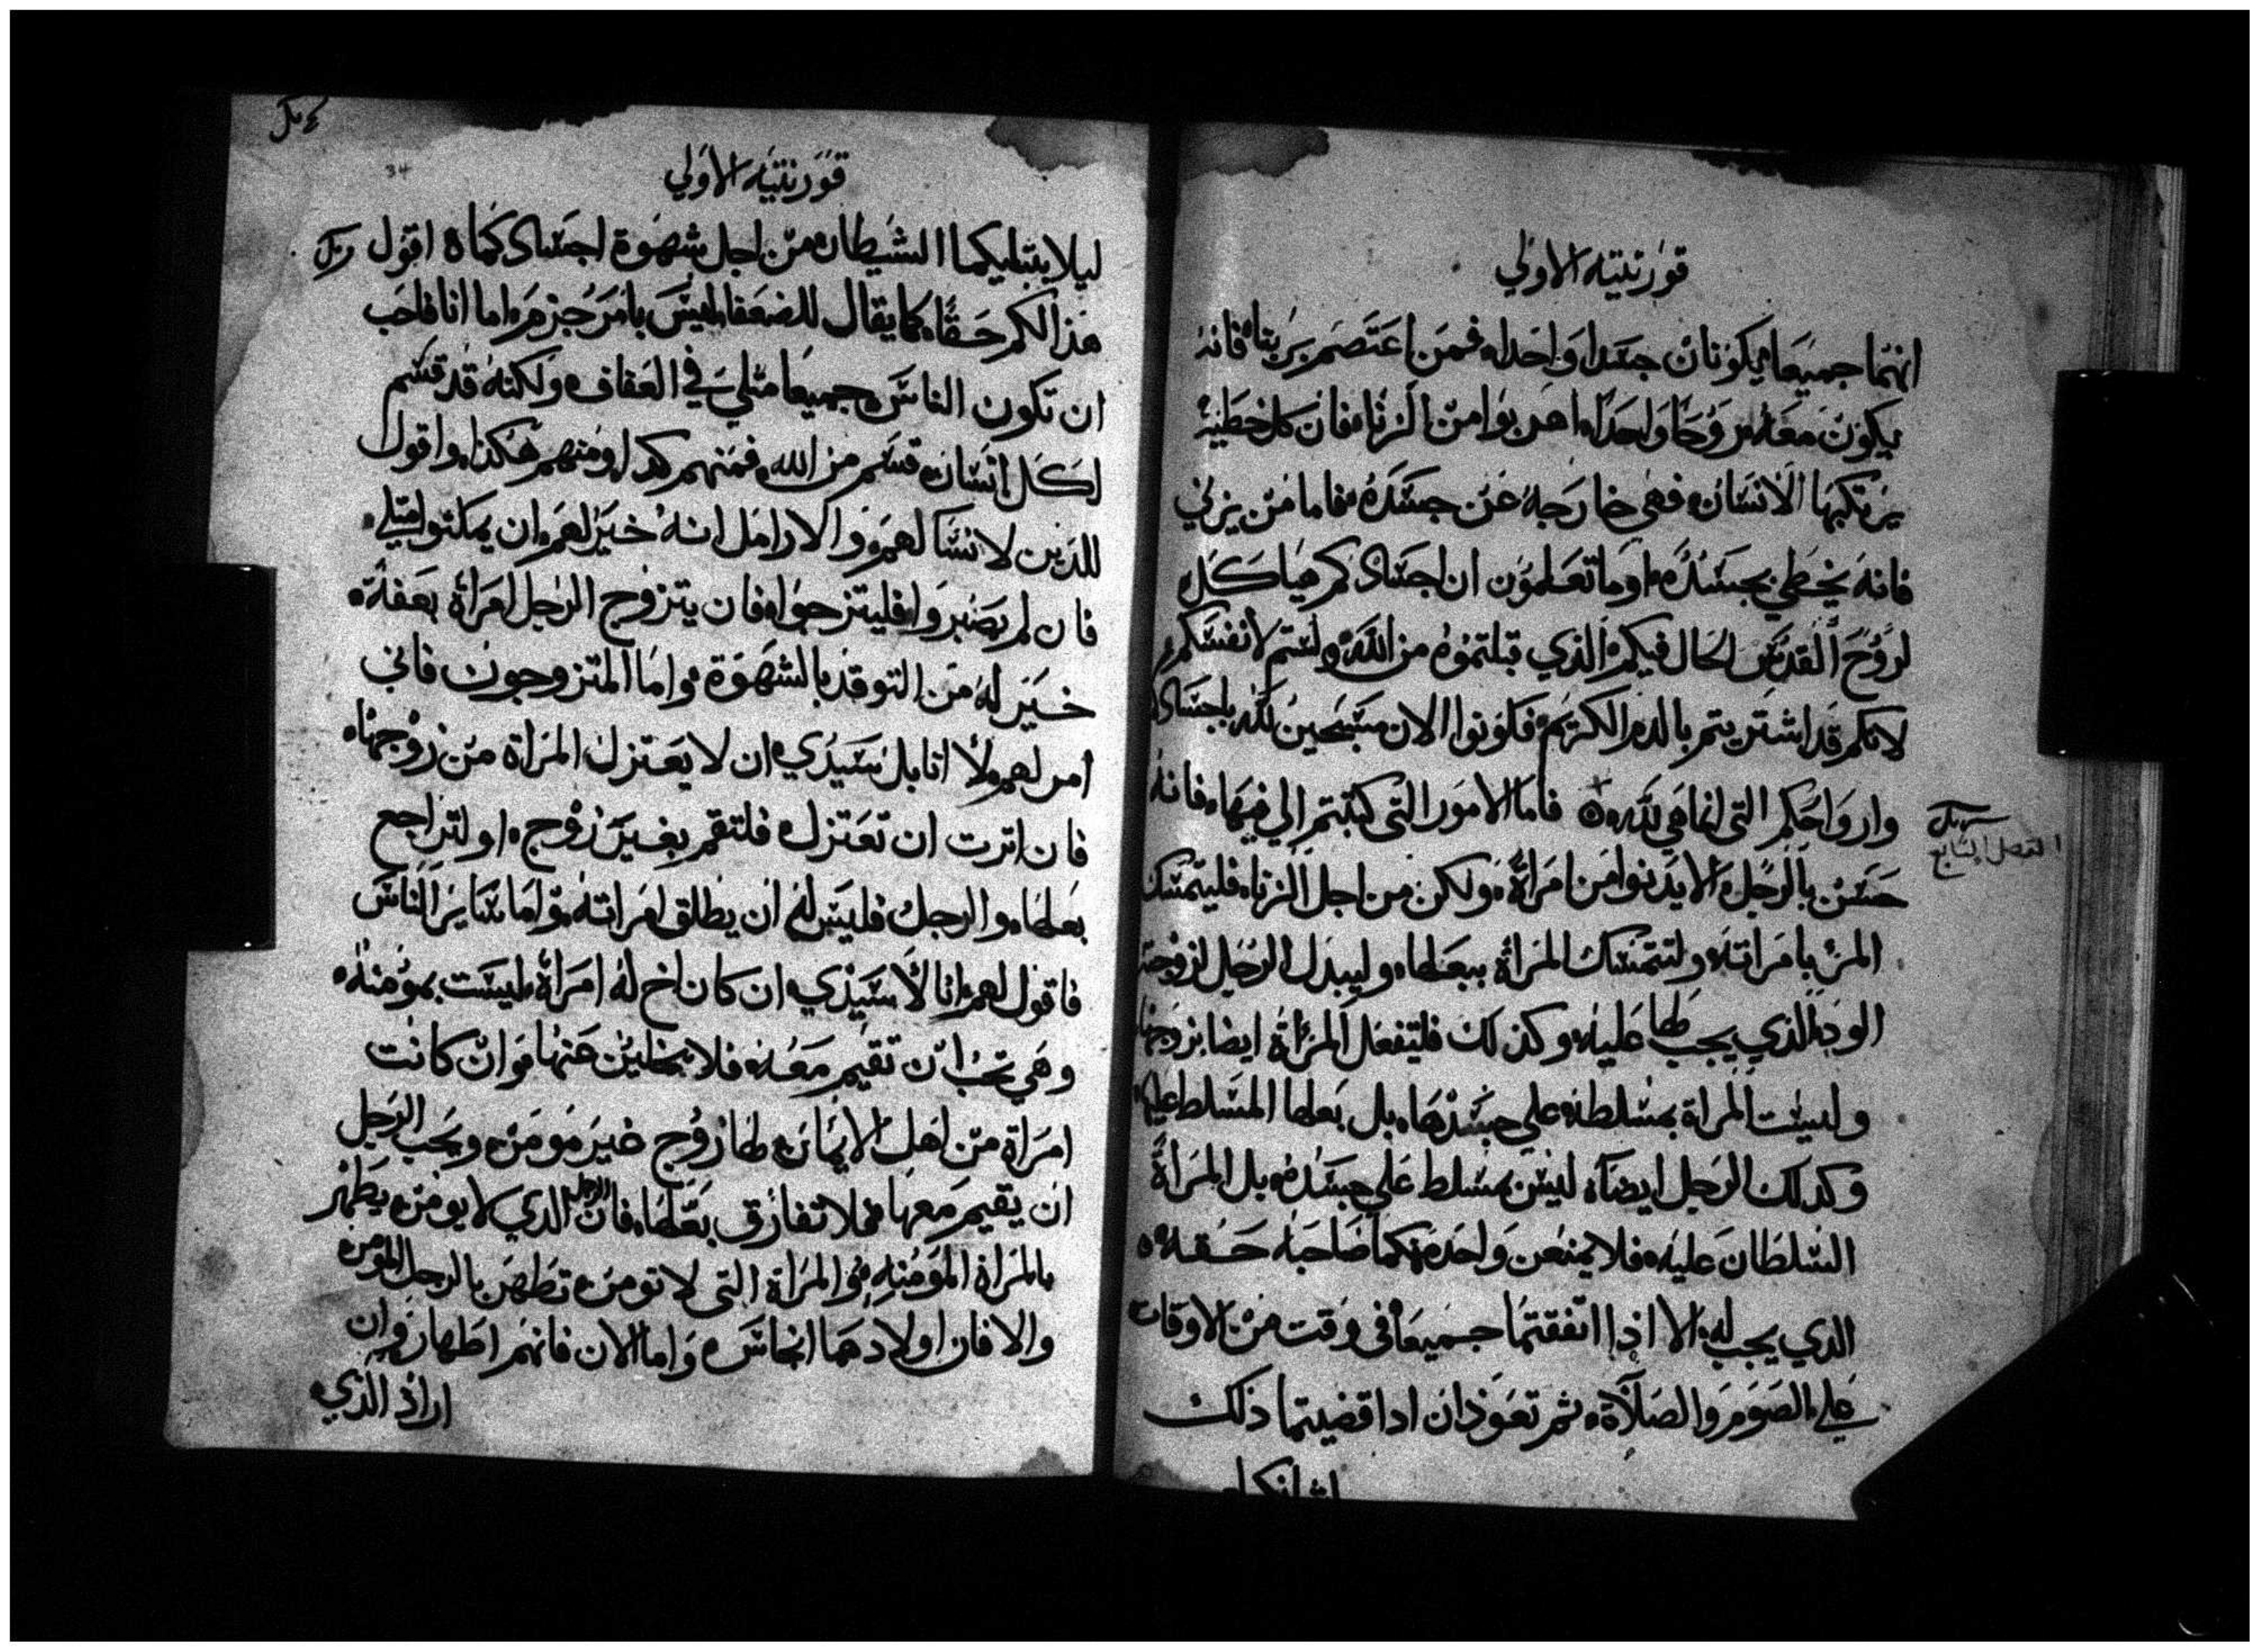 قورنتيه الاولي
انهما جميعا يكونان جسدا واحدا، فمن اعتصم بربنا فانه
يكون معه روحا واحدا، اهربوا من الزنا، فان كل خطيئه
يرتكبها الانسان، فهي خارجه عن جسده، فاما من يزني
فانه يخطي بجسده، اوما تعلمون ان اجسادكم هياكل
لروح القدس الحال فيكم، الذي قبلتموه من الله، ولستم لانفسكم،
لانكم قد اشتريتم بالدم الكريم، فكونوا الان مسبحين لله باجسادكم
وارواحكم التي انما هي لله، فاما الامور التي كتبتم الي فيها، فانه
الفصل السابع
حسن بالرجل، الا يدنوا من امراة، ولكن من اجل الزنا، فليتمسك
المرء بامراته، ولتتمسك المراة ببعلها، وليبدل الرجل لزوجته
الود الذي يجب لها عليه، وكذلك فلتفعل المراة ايضا بزوجها
وليست المراة بمسلطه علي جسدها، بل بعلها المسلط عليها
وكدلك الرجل ايضا، ليس بمسلط علي جسده، بل المراة
السلطان عليه، فلا يمنعن واحد منكما صاحبه حقه،
الدي يجب له، الا اذا اتفقتما جميعا في وقت من الاوقات
علي الصوم والصلاة، ثم تعودان ادا قضيتما ذلك
قورنتيه الاولي
34
ليلا يبتليكما الشيطان من اجل شهوة اجسادكما، اقول
هذا لكم حقا، كما يقال للضعفا، ليس بامر جزم، اما انا فاحب
ان تكون الناس جميعا مثلي في العفاف، ولكنه قد قسم
لكل انسان، قسم من الله، فمنهم كدا، ومنهم هكذا، واقول
للدين لا نسا لهم، والارامل انه خير لهم، ان يمكثوا مثلي،
فان لم يصبروا، فليتزوجوا، فان يتزوج الرجل امراة بعفة،
خير له من التوقد بالشهوة، واما المتزوجون فاني
امر لهم، لا انا بل سيدي، ان لا يعتزل المراة من زوجها،
فان اترت ان تعتزل، فلتقم بغير زوج، او لتراجع
بعلها، والرجل فليس له ان يطلق امراته، واما ساير الناس
فاقول لهم، انا لا سيدي، ان كان اخ له امراة، ليست بمومنه،
وهي تحب ان تقيم معه، فلا يخلين عنها، وان كانت
امراة من اهل الايمان، لها زوج غير مومن، ويحب الرجل
ان يقيم معها، فلا تفارق بعلها، فان الرجل الدي لا يومن، يطهر
بالمراة المومنه، والمراة التي لا تومن، تطهر بالرجل المومن،
والا فان اولادهما انجاس، واما الان فانهم اطهار، وان
اراد الذي